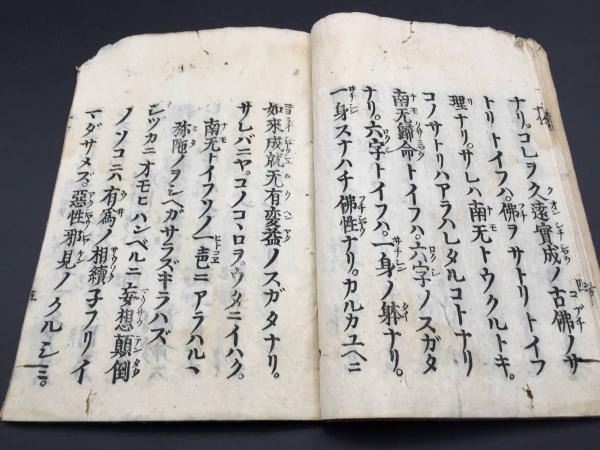 ナリ。コレヲ久遠實成ノ古佛ノサ
トリトイフハ。佛ヲサトリトイフ
理ナリ。サレハ南无トウクルトキ。
コノサトリハアラハレタルコトナリ
南无歸命トイフハ。六字ノスガタ
ナリ。六字トイフハ。一身ノ躰ナリ。
一身スナハチ佛性ナリ。カルカユヘニ
如來成就无有変益ノスガタナリ。
サレバニヤ。コノコヽロヲ。ウタニイハク。
南无トイフソノ一色ニアラハルヽ
弥陁ノヲシヘガサラズキラハズ
シツカニオモヒハンベルニ妄想顛倒
ノソコニハ有爲ノ相續子フリイ
マダサメズ。惡性邪見ノクルシミ。